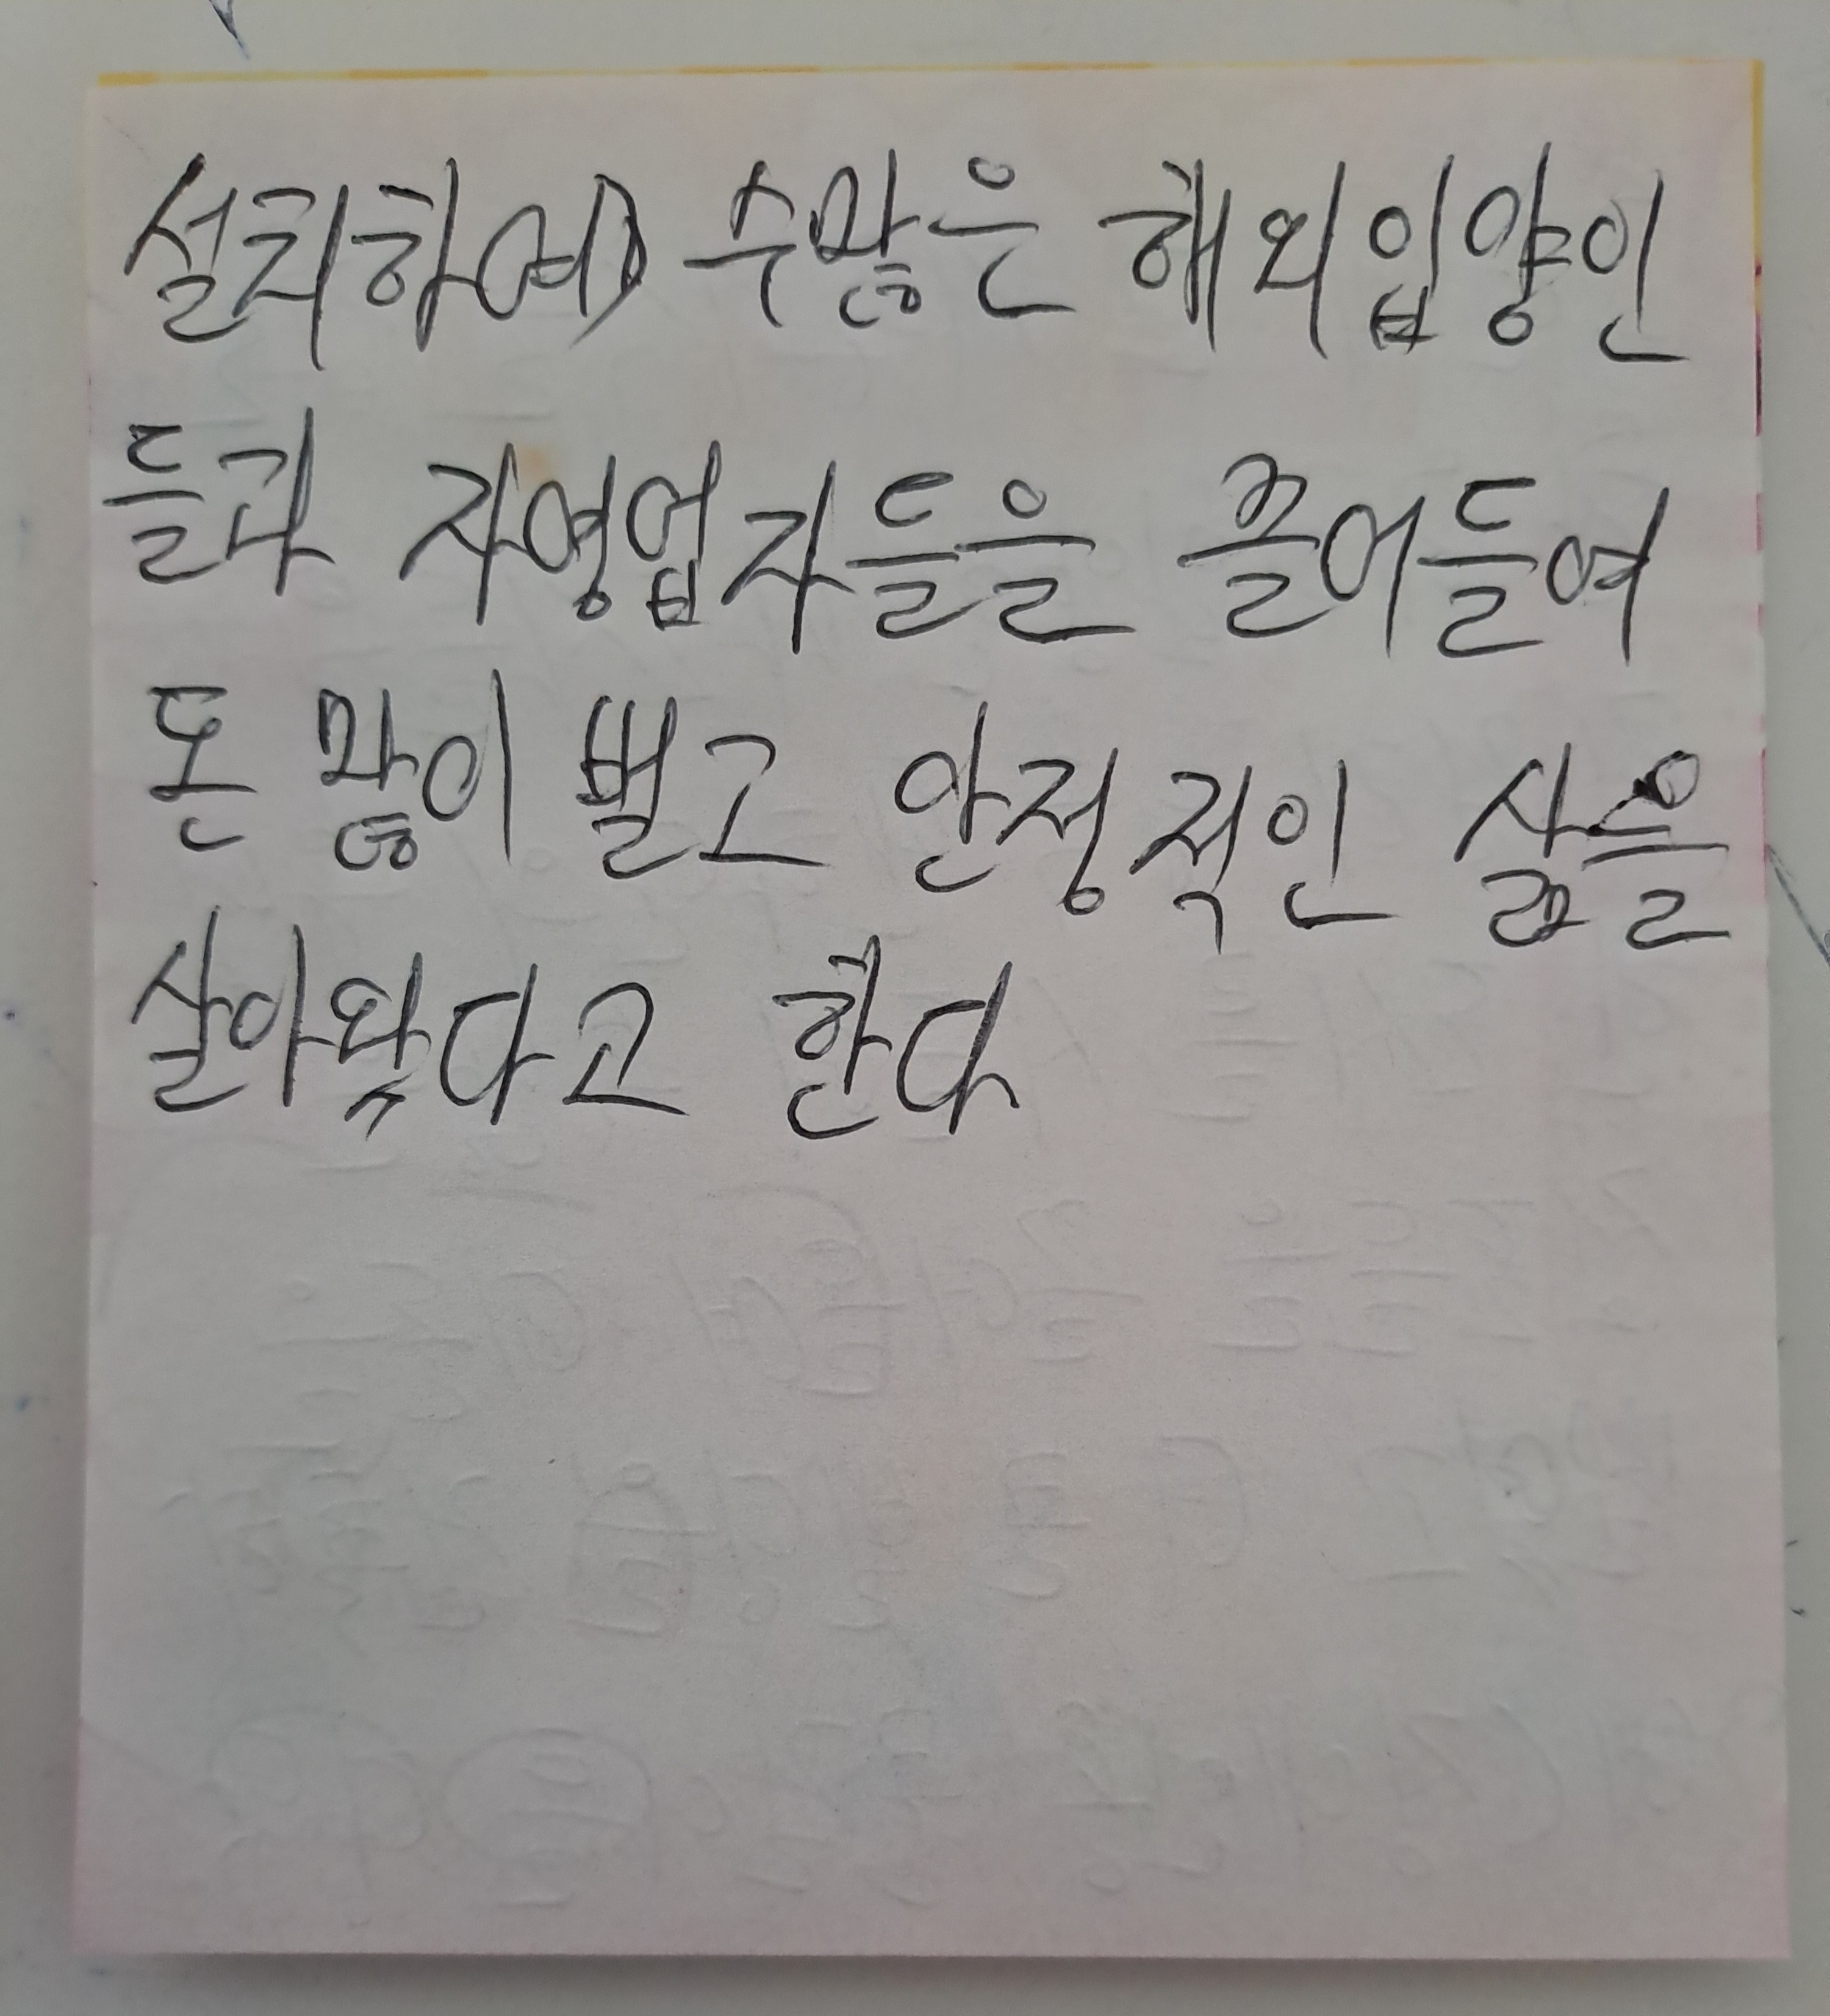 설치하여) 수많은 해외입양인
들과 자영업자들을 끌어들여
돈 많이 벌고 안정적인 삶을
살아왔다고 한다